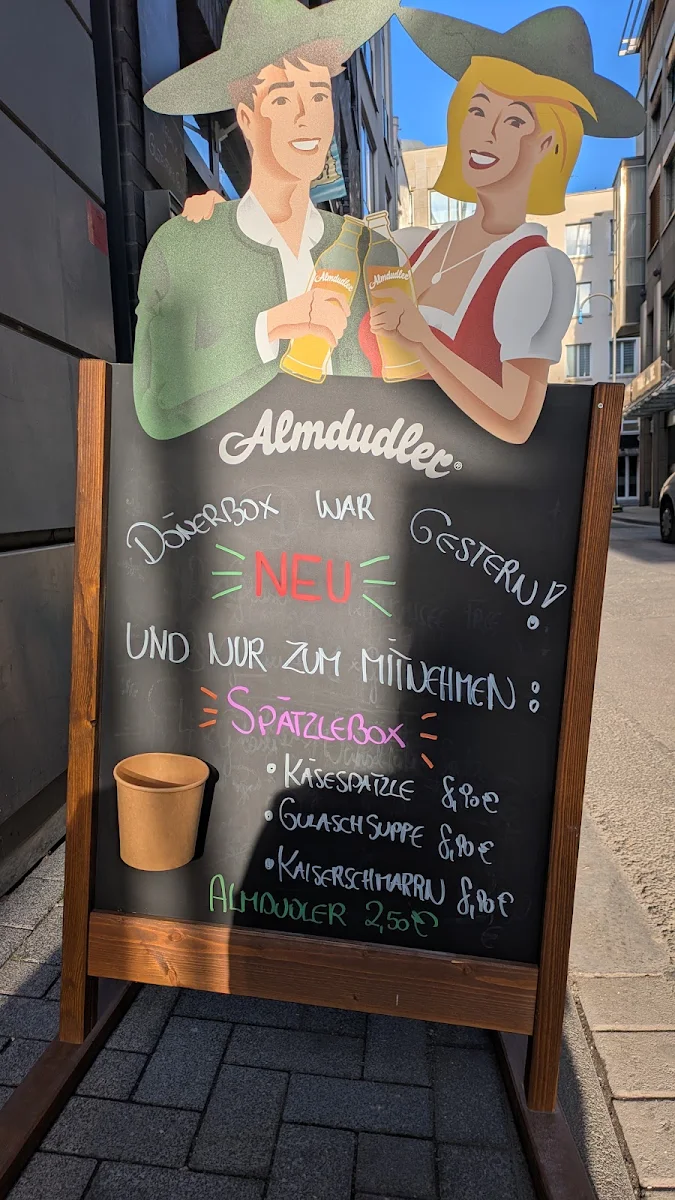 Almdudler Almdudler
Almdudler®
DÖNERBOX WAR GESTERN!
NEU
UND NUR ZUM MITNEHMEN:
SPÄTZLEBOX
• KÄSESPÄTZLE 8,90€
• GULASCHSUPPE 8,90€
• KAISERSCHMARRN 8,90€
ALMDUDLER 2,50€